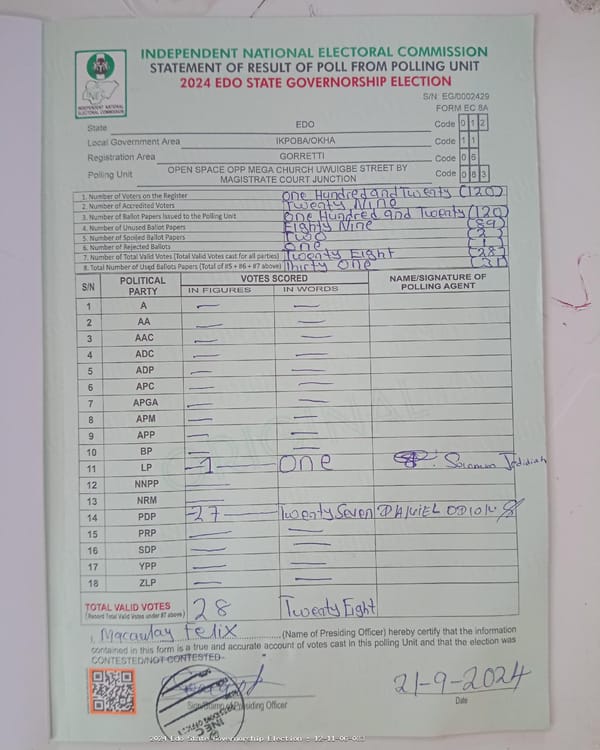 INDEPENDENT NATIONAL ELECTORAL COMMISSION
STATEMENT OF RESULT OF POLL FROM POLLING UNIT
2024 EDO STATE GOVERNORSHIP ELECTION
INDEPENDENT NATIONAL ELECTORAL COMMISSION
S/N: EG/0002429
FORM EC 8A
State EDO Code 0 1 2
Local Government Area IKPOBA/OKHA Code 1 1
Registration Area GORRETTI Code 0 6
Polling Unit OPEN SPACE OPP MEGA CHURCH UWUIGBE STREET BY MAGISTRATE COURT JUNCTION Code 0 8 3
1. Number of Voters on the Register One Hundred and Twenty (120)
2. Number of Accredited Voters Twenty Nine
3. Number of Ballot Papers Issued to the Polling Unit One Hundred and Twenty (120)
4. Number of Unused Ballot Papers Eighty Nine (89)
5. Number of Spoiled Ballot Papers Two (2)
6. Number of Rejected Ballots One (1)
7. Number of Total Valid Votes (Total Valid Votes cast for all parties) Twenty Eight (28)
8. Total Number of Used Ballots Papers (Total of #5 + #6 + #7 above) Thirty One (31)
S/N POLITICAL PARTY VOTES SCORED NAME/SIGNATURE OF POLLING AGENT
IN FIGURES IN WORDS
1 A — —
2 AA — —
3 AAC — —
4 ADC — —
5 ADP — —
6 APC — —
7 APGA — —
8 APM — —
9 APP — —
10 BP — —
11 LP -1— One
12 NNPP —
13 NRM —
14 PDP -27— Twenty Seven DANIEL ODION
15 PRP — —
16 SDP — —
17 YPP — —
18 ZLP — —
TOTAL VALID VOTES 28 Twenty Eight
(Record Total Valid Votes under #7 above)
I, Macaulay Felix (Name of Presiding Officer) hereby certify that the information
contained in this form is a true and accurate account of votes cast in this polling Unit and that the election was
CONTESTED/NOT CONTESTED
21-9-2024
Sign/Stamp of Presiding Officer Date
INEC
2024 Edo State Governorship Election : 12-11-06-083